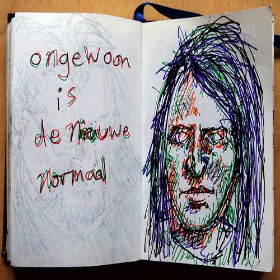 ongewoon
is
de nieuwe
normaal